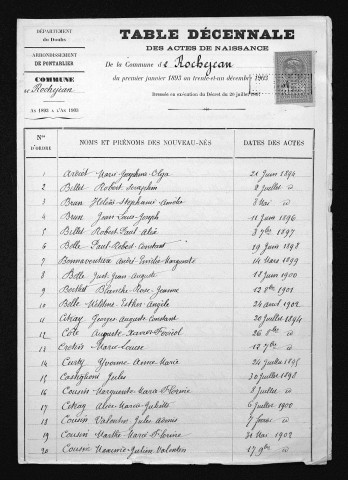 DÉPARTEMENT
du Doubs
ARRONDISSEMENT
DE PONTARLIER
COMMUNE
de Rochejean
An 1893 à l'An 1903
TABLE DÉCENNALE
DES ACTES DE NAISSANCE
De la Commune de Rochejean
du premier janvier 1893 au trente-et-un décembre 1903
Dressée en exécution du Décret du 20 juillet
Nos D'ORDRE NOMS ET PRÉNOMS DES NOUVEAU-NÉS DATES DES ACTES
1 Marie Joséphine Olga 21 Juin 1894
2 Billet Robert Seraphin 2 Juillet d
3 Brun Hélène Stéphanie 8 Mai d
4 Brun Jean Louis Joseph 11 Juin 1896
5 Billet Robert Paul 3 7bre 1897
6 Belle Paul Robert Constant 19 Juin 1898
7 Bonnaventura André Emilie Marguerite 14 Mars 1899
8 Belle Just Jean Auguste 18 Juin 1900
9 Berthet Blanche Rose Jeanne 12 8bre 1901
10 Belle Esther Angèle 24 avril 1902
11 Georges Auguste Constant 20 Juillet 1894
12 Côte Auguste Xavier 26 8bre d
13 Marie Louise 12 7bre d
14 Curty Yvonne Anna Marie 24 Juillet 1895
15 Castiglioni Jules 30 Juillet 1898
16 Cousin Marguerite Marie 8 Juillet d
17 Marie Juliette 6 Juillet 1900
18 Cousin Valentin Jules 7 d
19 Cousin Marthe Marie 30 Mai 1902
20 Cousin Julien Valentin 17 9bre d